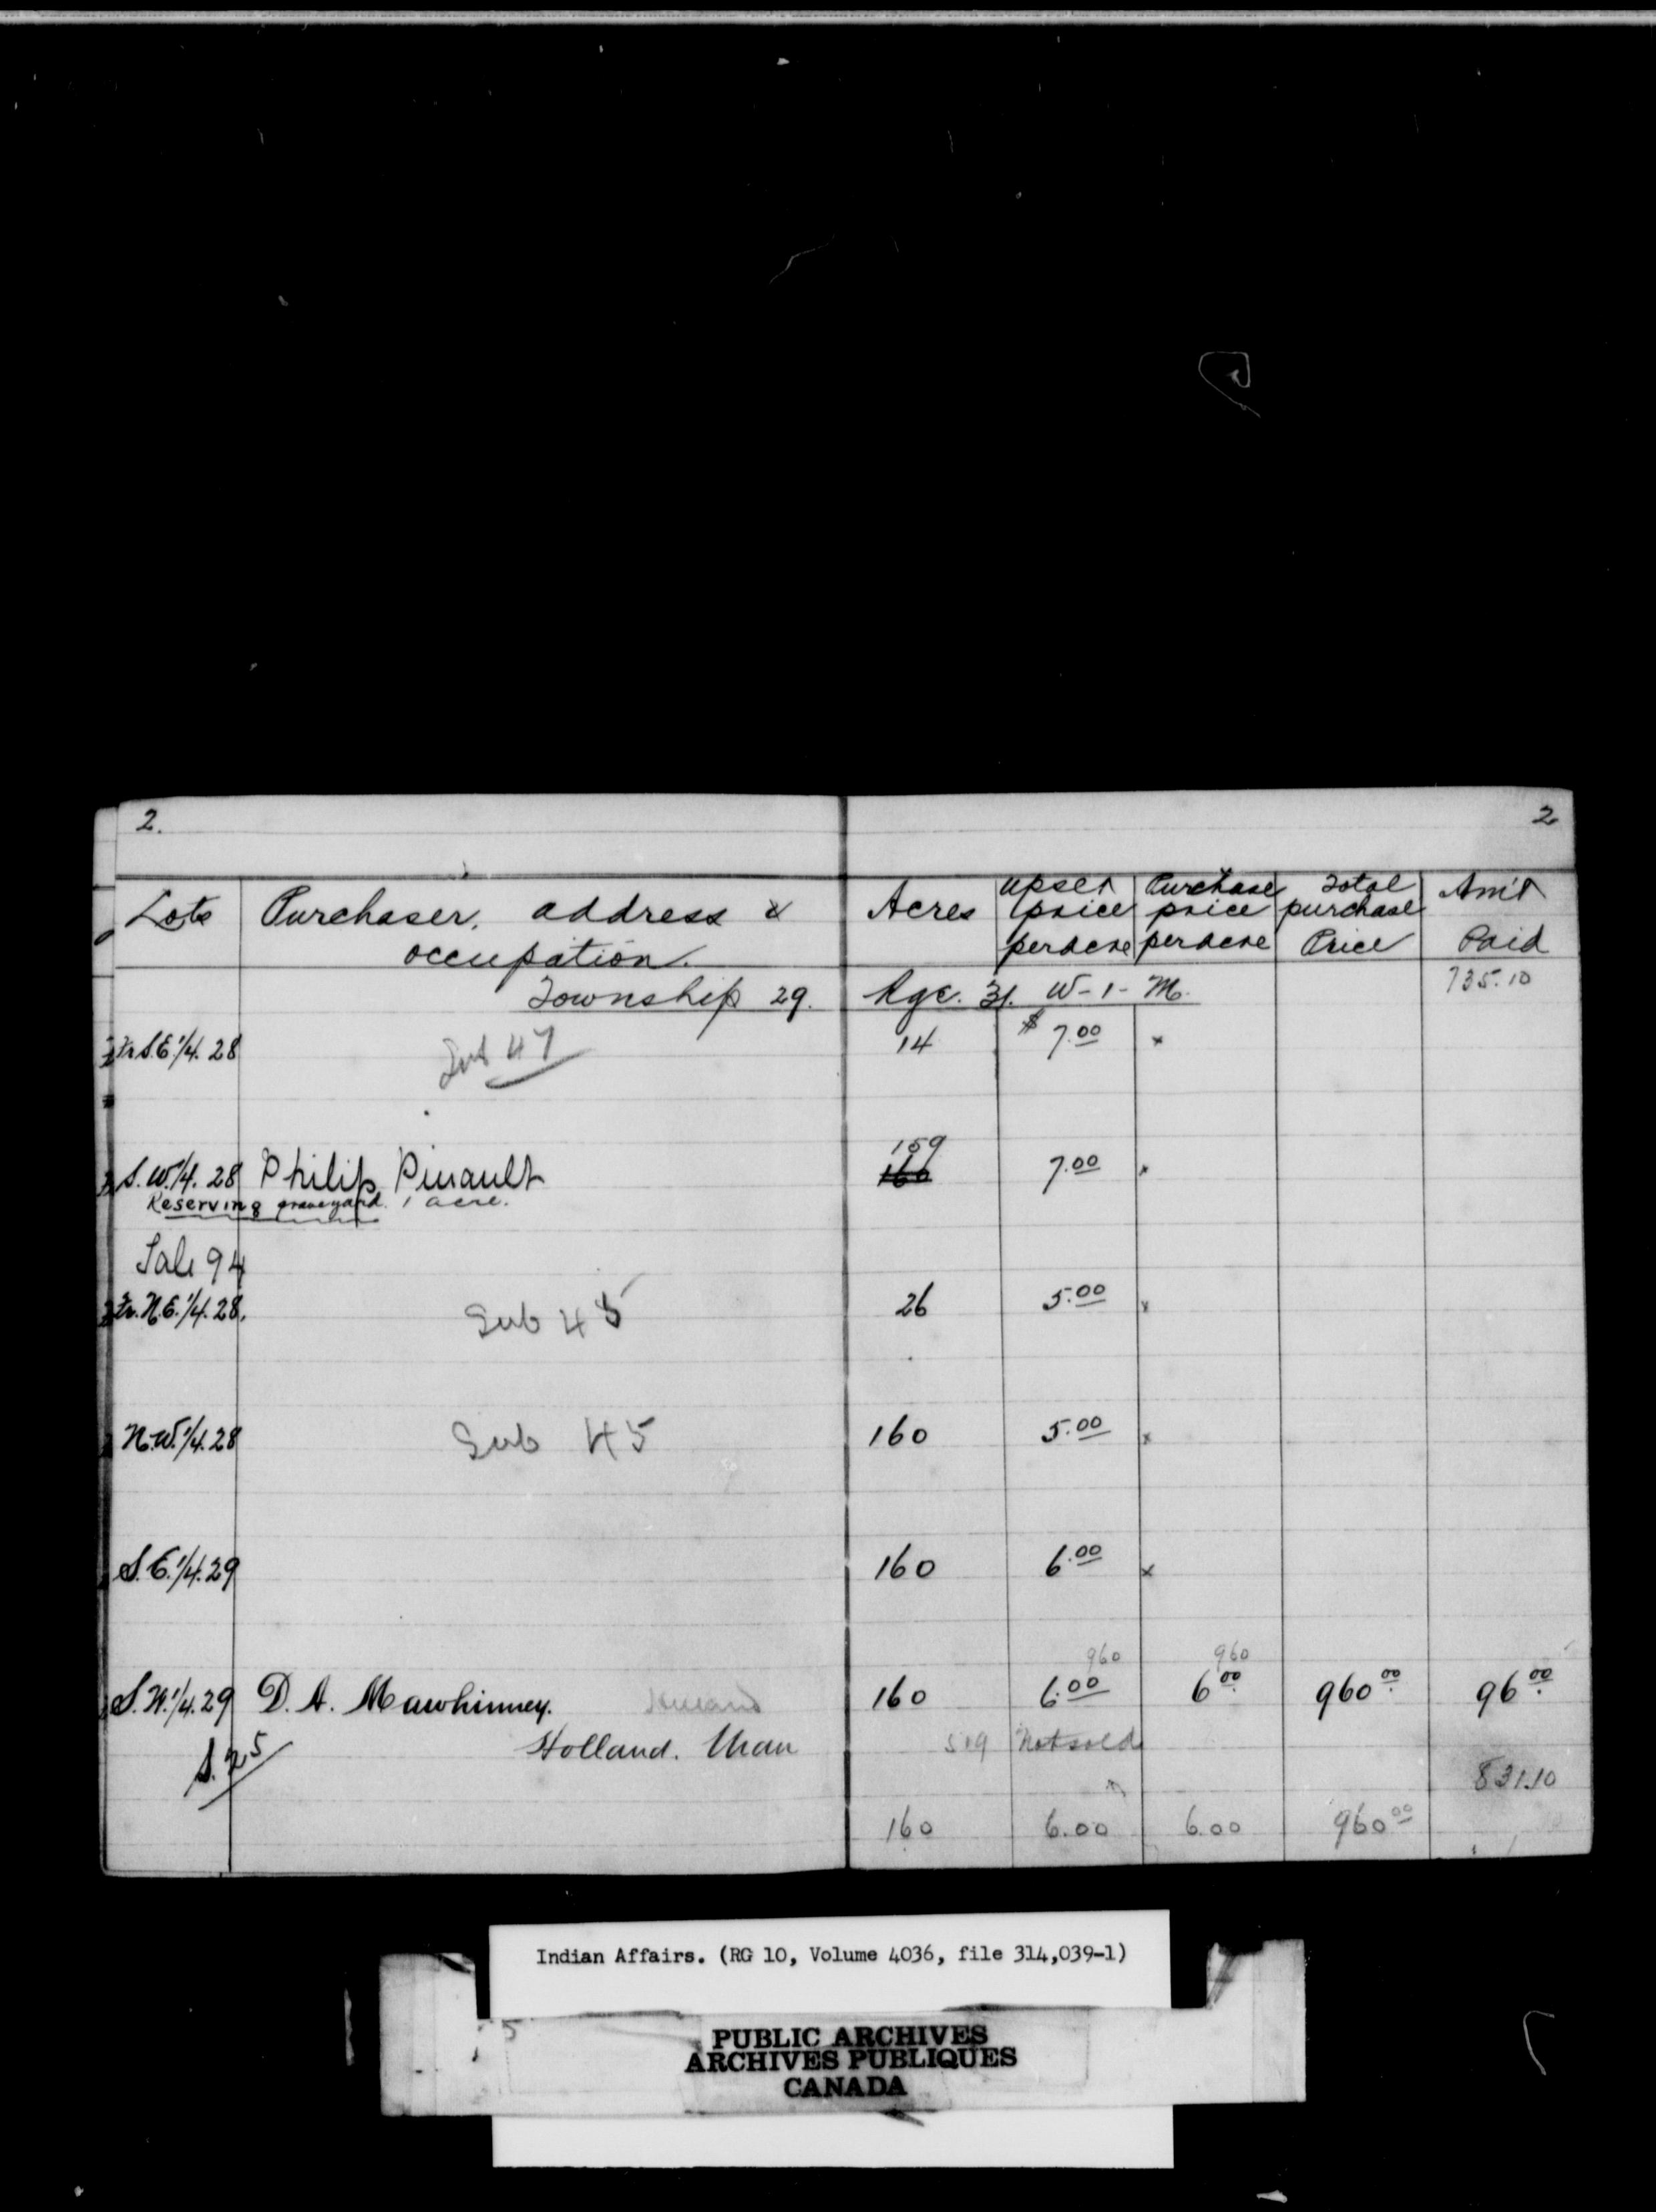 2. 2
Lots Purchaser, address & occupation. Acres Upset price per acre Purchase price per acre Total purchase Price Am't Paid
Township 29. Rge. 31. W-1-M. 735.10
Fr S.E. 1/4. 28 Sub 47 14 $7.00 x
159
S.W. 1/4. 28 Philip Pinault 160 7.00 x
Reserving graveyard. 1 acre.
Sale 94
Fr. N.E. 1/4. 28. Sub 45 26 5.00 x
N.W. 1/4. 28 Sub 45 160 5.00 x
S.E. 1/4. 29 160 6.00 x
960 960
S.W. 1/4. 29 D. A. Mawhinney. 160 6.00 6.00 960.00 96.00
S. 25 Holland. Man 519 Not sold
831.10
160 6.00 6.00 960.00
Indian Affairs. (RG 10, Volume 4036, file 314,039-1)
5
PUBLIC ARCHIVES
ARCHIVES PUBLIQUES
CANADA